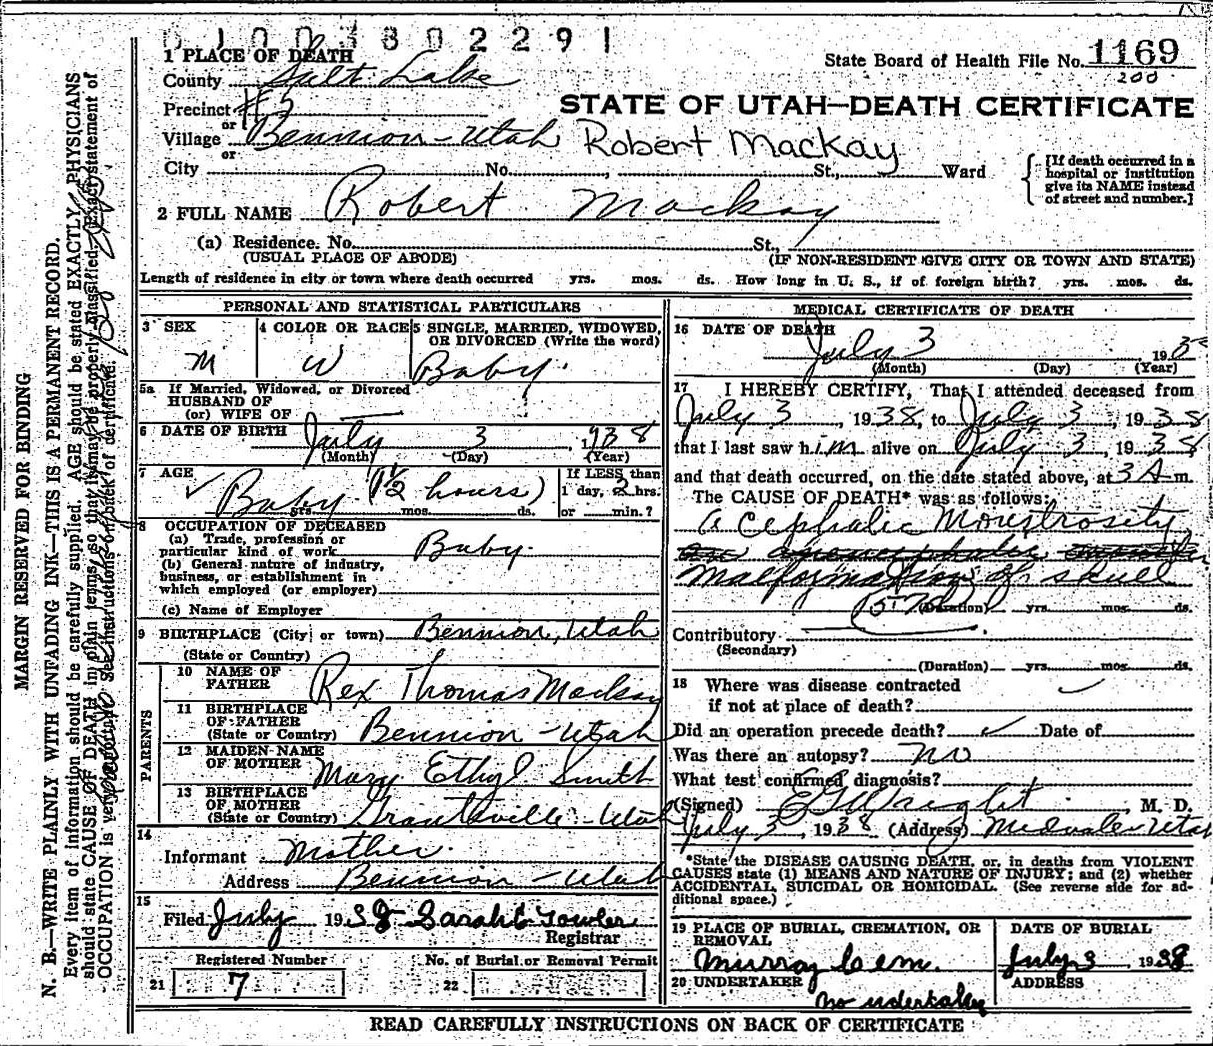 D J 0 0 3 8 0 2 2 9 1
1 PLACE OF DEATH
State Board of Health File No. 1169
200
County Salt Lake
Precinct #3
STATE OF UTAH—DEATH CERTIFICATE
or
Village Bennion - Utah Robert Mackay
or
City No. , St., Ward
[If death occurred in a hospital or institution give its NAME instead of street and number.]
2 FULL NAME Robert Mackay
(a) Residence. No. St.,
(USUAL PLACE OF ABODE) (IF NON-RESIDENT GIVE CITY OR TOWN AND STATE)
Length of residence in city or town where death occurred yrs. mos. ds. How long in U. S., if of foreign birth? yrs. mos. ds.
PERSONAL AND STATISTICAL PARTICULARS
3 SEX M
4 COLOR OR RACE W
5 SINGLE, MARRIED, WIDOWED, OR DIVORCED (Write the word) Baby.
5a If Married, Widowed, or Divorced
HUSBAND OF
(or) WIFE OF
6 DATE OF BIRTH July 3 1938
(Month) (Day) (Year)
7 AGE Baby (1½ hours)
yrs. mos. ds.
If LESS than
1 day, 2 hrs.
or min.?
8 OCCUPATION OF DECEASED
(a) Trade, profession or
particular kind of work Baby.
(b) General nature of industry,
business, or establishment in
which employed (or employer)
(c) Name of Employer
9 BIRTHPLACE (City or town) Bennion, Utah
(State or Country)
PARENTS
10 NAME OF
FATHER Rex Thomas Mackay
11 BIRTHPLACE
OF FATHER
(State or Country) Bennion - Utah
12 MAIDEN NAME
OF MOTHER Mary Ethyl Smith
13 BIRTHPLACE
OF MOTHER
(State or Country) Grantsville - Utah
14
Informant Mother.
Address Bennion - Utah
15
Filed July 1938 Sarah E Towler
Registrar
Registered Number No. of Burial or Removal Permit
21 7 22
MEDICAL CERTIFICATE OF DEATH
16 DATE OF DEATH
July 3 193
(Month) (Day) (Year)
17 I HEREBY CERTIFY, That I attended deceased from
July 3, 1938, to July 3, 1938
that I last saw him alive on July 3, 1938
and that death occurred, on the date stated above, at 3 A m.
The CAUSE OF DEATH* was as follows:
Acephalic Monstrosity
Malformation of skull
157a (Duration) yrs. mos. ds.
Contributory
(Secondary)
(Duration) yrs. mos. ds.
18 Where was disease contracted
if not at place of death?
Did an operation precede death? Date of
Was there an autopsy? no
What test confirmed diagnosis?
(Signed) E G Wright, M. D.
July 3, 1938 (Address) Midvale Utah
*State the DISEASE CAUSING DEATH, or, in deaths from VIOLENT
CAUSES state (1) MEANS AND NATURE OF INJURY; and (2) whether
ACCIDENTAL, SUICIDAL OR HOMICIDAL. (See reverse side for ad-
ditional space.)
19 PLACE OF BURIAL, CREMATION, OR
REMOVAL
Murray Cem.
DATE OF BURIAL
July 3 1938
20 UNDERTAKER
No undertaker
ADDRESS
READ CAREFULLY INSTRUCTIONS ON BACK OF CERTIFICATE
MARGIN RESERVED FOR BINDING
N. B.—WRITE PLAINLY WITH UNFADING INK—THIS IS A PERMANENT RECORD.
Every item of information should be carefully supplied. AGE should be stated EXACTLY. PHYSICIANS
should state CAUSE OF DEATH in plain terms, so that it may be properly classified. Exact statement of
OCCUPATION is very important. See instructions on back of certificate.